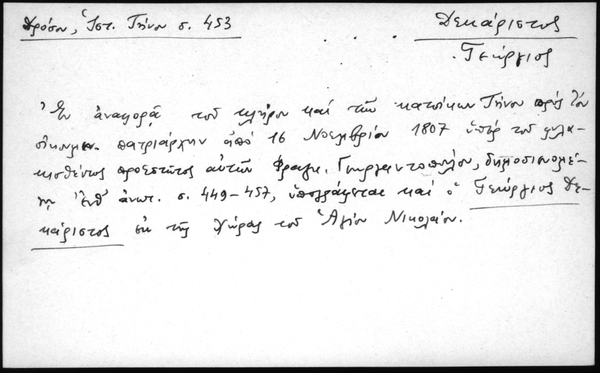 Δρόσου, Ἱστ. Τήνου σ. 453
Δεκάριστος
Γεώργιος
Ἐν ἀναφορᾷ τοῦ κλήρου καὶ τῶν κατοίκων Τήνου πρὸς τὸν
οἰκουμ. πατριάρχην ἀπὸ 16 Νοεμβρίου 1807 ὑπὲρ τοῦ φυλα-
κισθέντος προεστῶτος αὐτῶν Φραγκ. Γεωργαντοπούλου, δημοσιευομέ-
νῃ ἔνθ' ἀνωτ. σ. 449-457, ὑπογράφεται καὶ ὁ Γεώργιος Δε-
κάριστος ἐκ τῆς χώρας τοῦ Ἁγίου Νικολάου.